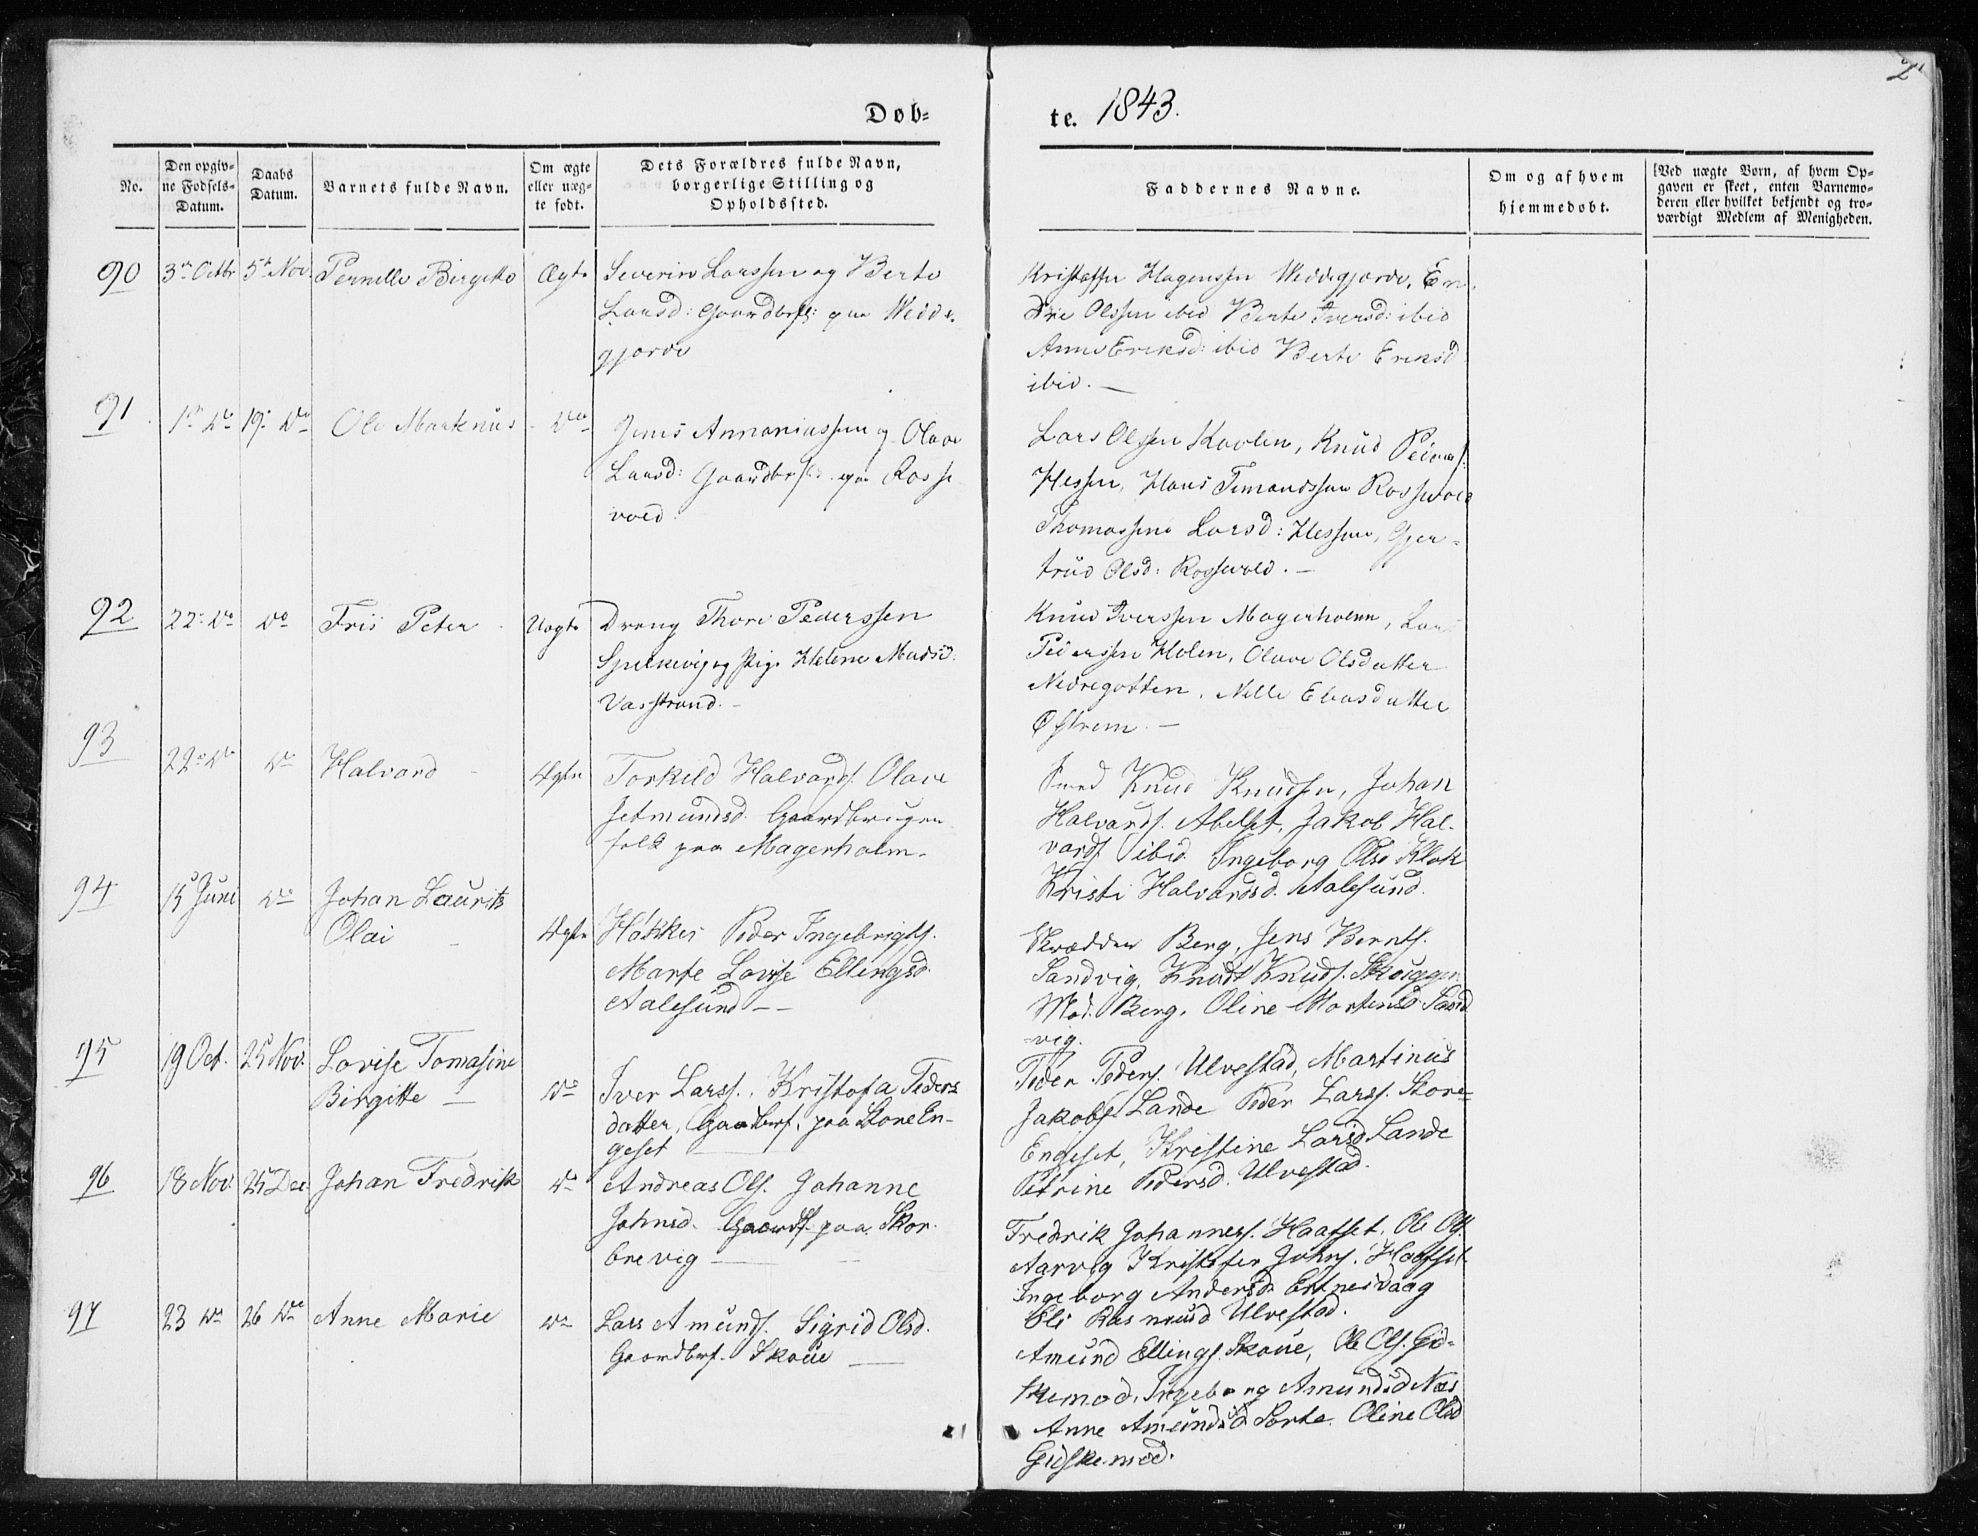 Døb=
te. 1843.
2
No.
Den opgiv=
ne Fødsels=
Datum.
Daabs
Datum.
Barnets fulde Navn.
Om ægte
eller uæg=
te født.
Dets Forældres fulde Navn,
borgerlige Stilling og
Opholdssted.
Faddernes Navne.
Om og af hvem
hjemmedøbt.
[Ved uægte Børn, af hvem Op=
gaven er skeet, enten Barnemo=
deren eller hvilket bekjendt og tro=
værdigt Medlem af Menigheden.
90 3die Octbr 5te Nov. Pernelle Birgitte Ægte Severin Larssen og Berte
Larsd: Gaardbrfl: paa Wedde=
gjerde
Kristoffer Hagenssen Weddegjerde, En=
dre Olssen ibid Berte Iversd: ibid
Anne Eriksd: ibid Berte Eriksd
ibid. —
91. 1ste do 19. do Ole Martenus do Jens Annaniassen og Olave
Larsd: Gaardbrfl: paa Rosse
vold.
Lars Olssen Kavlen, Knud Peders:
Hessen, Hans Timandssen Rossevold
Thomassine Larsd: Hessen, Gjer=
trud Olsd: Rossevold. —
92 22: do do Fris Peter Uægte Dreng Thore Pederssen
Spjelkevig og Pige Helene Madsd:
Vasstrand. —
Knud Iverssen Magerholmen, Lars
Pederssen Holen, Olave Olsdatter
Nedregotten, Nelle Eliasdatter
Østrem. —
93 22: do do Halvard Ægte Torkild Halvards. Olave
Jetmundsd. Gaardbruger
folk paa Magerholm.
Smed Knud Knudsen, Johan
Halvards. Abelset, Jakob Hal-
vards. ibid. Ingeborg Olsd Klok
Kristi Halvardsd. Aalesund.
94 15 Juni do Johan Laurits
Olai Ægte Høkker Peder Ingebrigts.
Marte Lovise Ellingsd.
Aalesund —
Skrædder Berg, Jens Bernts.
Sandvig, Knudt Knuds. Skouggen
Mad. Berg, Oline Mortensd Sand
-vig.
95 19 Oct. 25 Nov. Lovise Tomasine
Birgitte — do Iver Larss. Kristofa Peders=
datter, Gaardbrf. paa Store En-
geset —
Peder Peders. Ulvestad, Martinus
Jakobs. Lande Peder Larss. Store=
Engeset, Kristine Larsd Lande
Petrine Pedersd. Ulvestad.
96 18 Nov. 25 Dec. Johan Fredrik do Andreas Ols. Johanne
Johnsd. Gaardf. paa Skor-
brevig —
Fredrik Johanness. Haafset, Ole Ols.
Aarvig Kristofer Johns. Haafset
Ingeborg Andersd. Eltnesvaag
Eli Rasmusd Ulvestad.
97 23 do 26 do Anne Marie do Lars Amunds. Sigrid Olsd.
Gaardbrf. Skoue —
Amund Ellings. Skoue, Ole Ols. Gid-
skemod, Ingeborg Amundsd Næs
Anne Amundsd Sorte. Oline Olsd
Gidskemod.